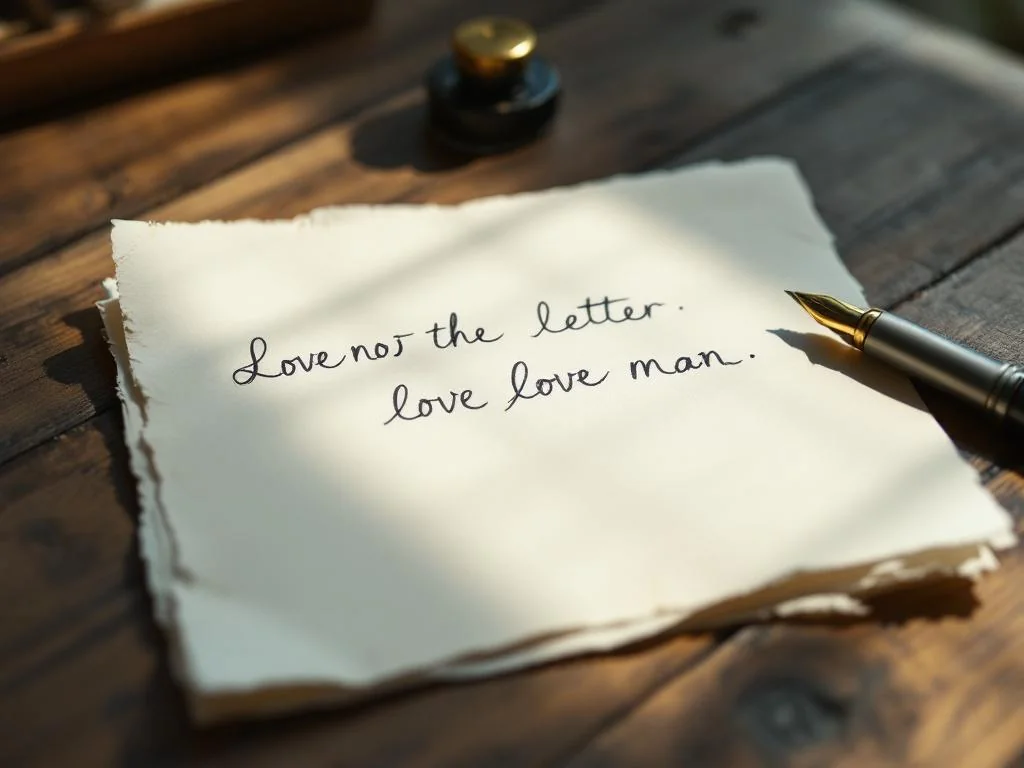 Love not the letter.
love love man.